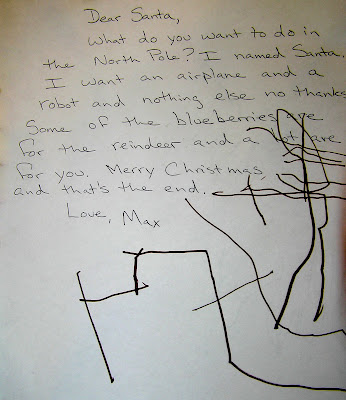 Dear Santa,
What do you want to do in
the North Pole? I named Santa.
I want an airplane and a
robot and nothing else no thanks
Some of the blueberries are
for the reindeer and a lot are
for you. Merry Christmas
and that's the end.
Love, Max